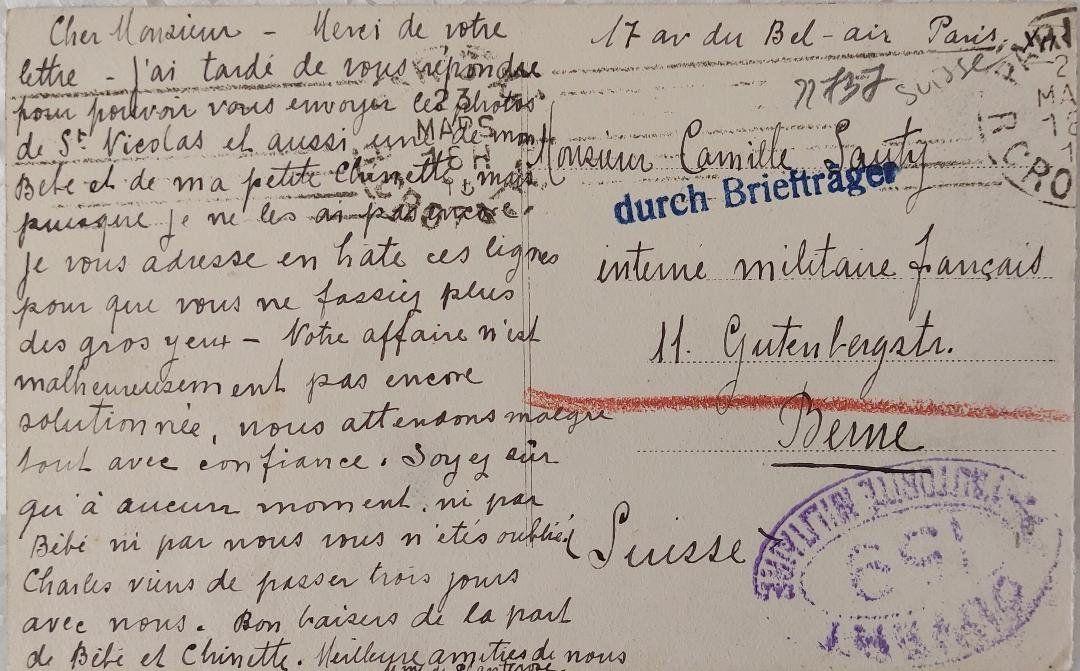 Cher Monsieur - Merci de votre
lettre - J'ai tardé de vous répondre
pour pouvoir vous envoyer les photos
de St Nicolas et aussi une de mon
Bébé et de ma petite Chinette, mais
puisque je ne les ai pas encore.
Je vous adresse en hate ces lignes
pour que vous ne fassiez plus
des gros yeux - Votre affaire n'est
malheureusement pas encore
solutionnée, nous attendons malgré
tout avec confiance. Soyez sûr
qu'à aucun moment, ni par
Bébé ni par nous vous n'étés oublié.
Charles viens de passer trois jours
avec nous. Bon baisers de la part
de Bébé et Chinette. Meilleure amitiés de nous
17 av du Bel-air Paris. XII
suisse
Monsieur Camille
durch Briefträger
interné militaire français
11. Gutenbergstr.
Berne
(Suisse)
23
MARS
L'AUTORITÉ MILITAIRE
OUVERT